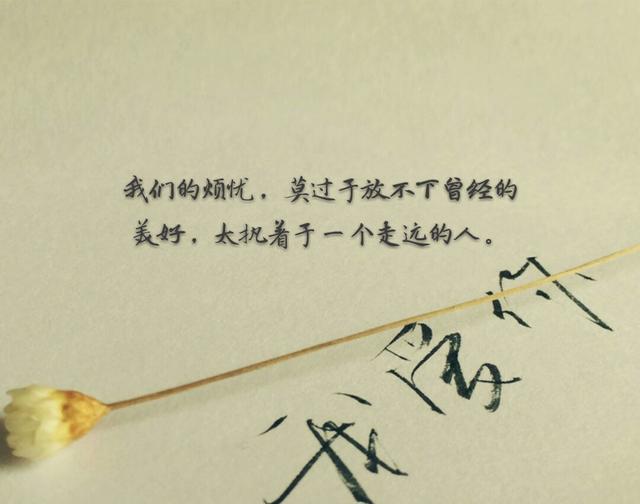 我们的烦忧，莫过于放不下曾经的
美好，太执着于一个走远的人。
我你